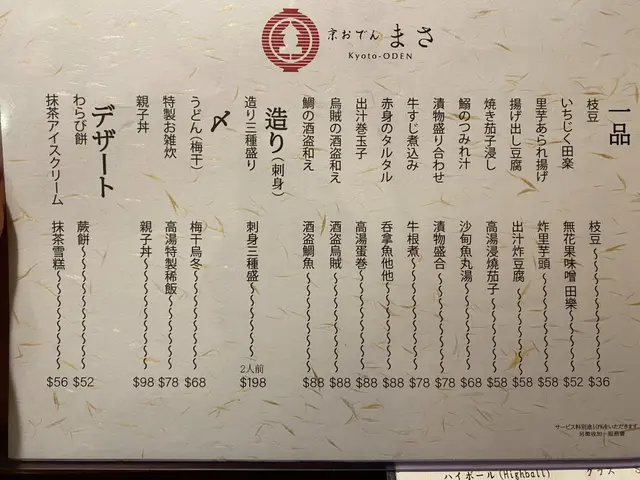 京おでん まさ
Kyoto-ODEN
一品
枝豆 枝豆 $36
いちじく田楽 無花果味噌 田樂 $52
里芋あられ揚げ 炸里芋頭 $58
揚げ出し豆腐 出汁炸豆腐 $58
焼き茄子浸し 高湯浸燒茄子 $58
鰯のつみれ汁 沙甸魚丸湯 $68
漬物盛り合わせ 漬物盛合 $78
牛すじ煮込み 牛根煮 $78
赤身のタルタル 吞拿魚他他 $88
出汁巻玉子 高湯蛋巻 $88
烏賊の酒盗和え 酒盗烏賊 $88
鯛の酒盗和え 酒盗鯛魚 $88
造り(刺身)
造り三種盛り 刺身三種盛 2人前 $198
〆
うどん(梅干) 梅干烏冬 $68
特製お雑炊 高湯特製稀飯 $78
親子丼 親子丼 $98
デザート
わらび餅 蕨餅 $52
抹茶アイスクリーム 抹茶雪糕 $56
サービス料別途10%をいただきます。
另需徴加一服務費
ハイボール(Highball) グラス